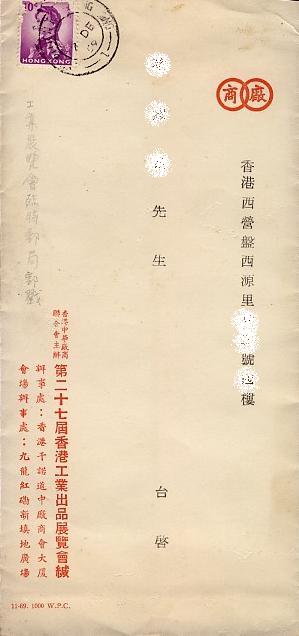 10¢
HONG KONG
DE
商廠
香港西營盤西源里 號 樓
先生
台啓
工業展覽會臨時郵局郵戳
香港中華廠商
聯合會主辦
第二十七屆香港工業出品展覽會緘
辦事處：香港干諾道中廠商會大厦
會場辦事處：九龍紅磡新填地廣場
11-69. 1000 W.P.C.